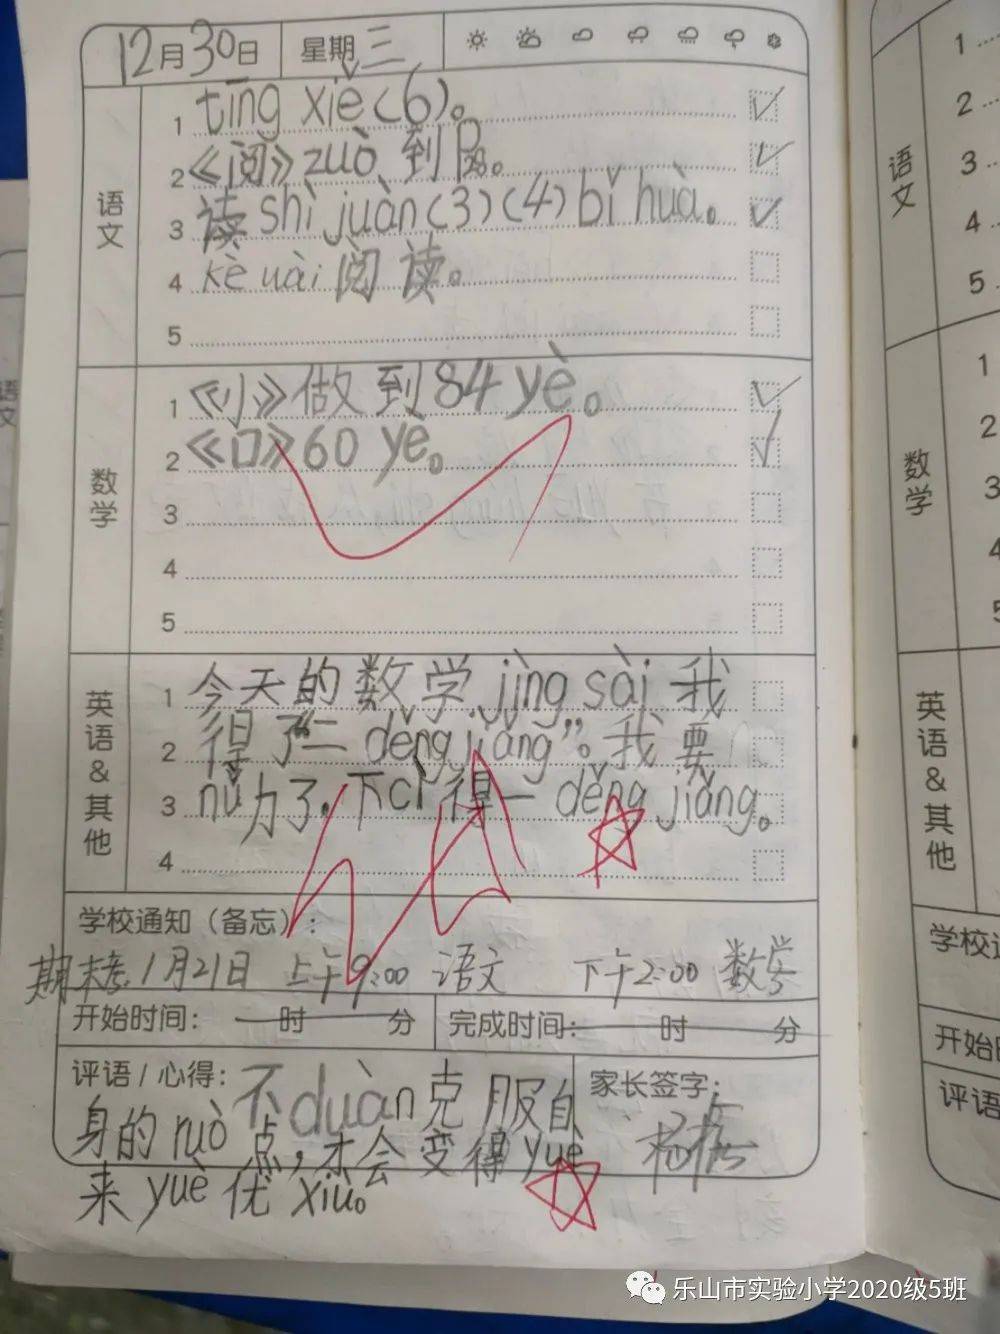 12月30日 星期三
语文
1 tīng xiě(6)。
2 《阅》zuò 到
3 读 shì juàn(3)(4)bǐ huà。
4 kè uài 阅读。
5
数学
1 《小》做到84 yè。
2 《口》60 yè。
3
4
5
英语&其他
1 今天的数学 jìng sài 我
2 得了“二 děng jiǎng”。我要
3 nǔ力了,下cì得一 děng jiǎng。
4
学校通知（备忘）：
期末考 1月21日 上午9:00 语文 下午2:00 数学
开始时间： 时 分 完成时间： 时 分
评语/心得： 家长签字：
不duàn克服自
身的ruò点,才会变得yuè
来yuè优xiù。
1
2
语文
3
4
5
1
2
数学
3
4
5
英语&其他
学校通
开始时
评语
语文
乐山市实验小学2020级5班